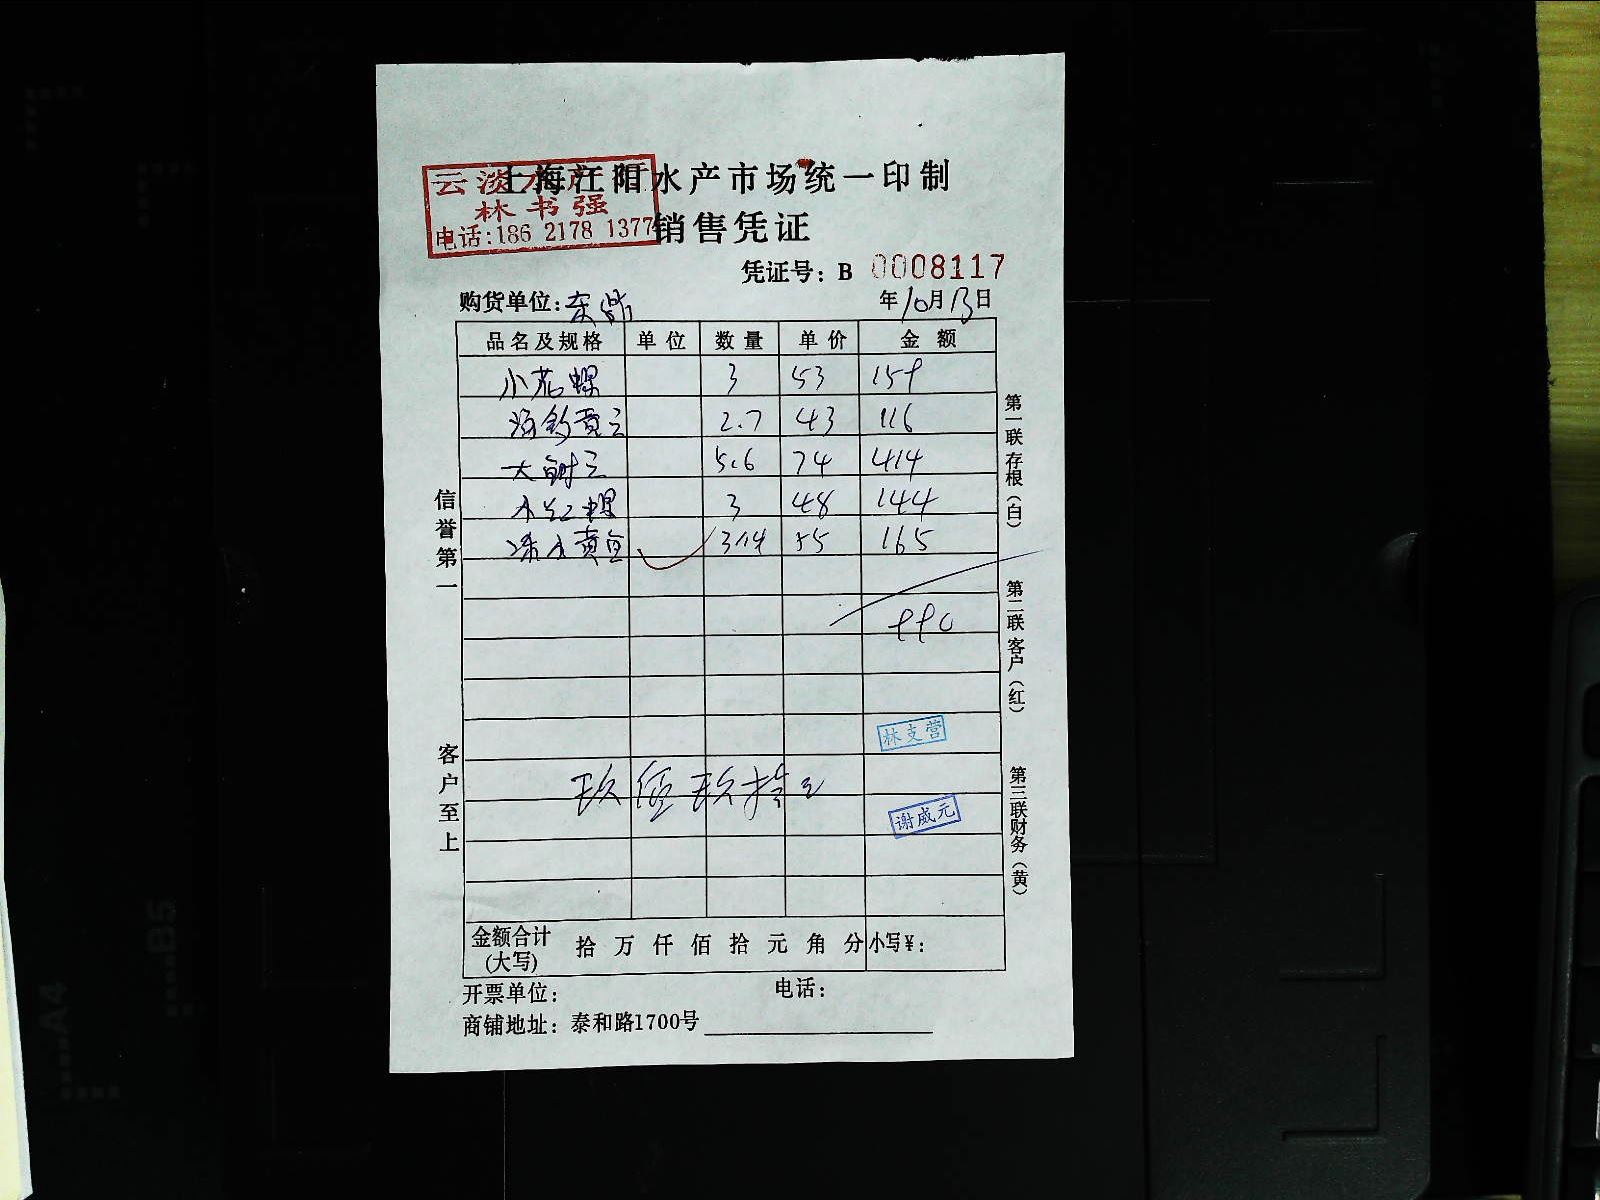 上海江阳水产市场统一印制
云淡水产行
林书强
电话:186 2178 1377
销售凭证
凭证号: B 0008117
购货单位: 年10月13日
品名及规格 单位 数量 单价 金额
小花螺 3 53 159
海钓黄 2.7 43 116
大 5.6 74 414
小红螺 3 48 144
冻小黄鱼 55 165
990
林支营
玖佰玖拾元
谢威元
金额合计(大写) 拾 万 仟 佰 拾 元 角 分 小写¥:
开票单位: 电话:
商铺地址: 泰和路1700号
信誉第一
客户至上
第一联 存根(白)
第二联 客户(红)
第三联 财务(黄)